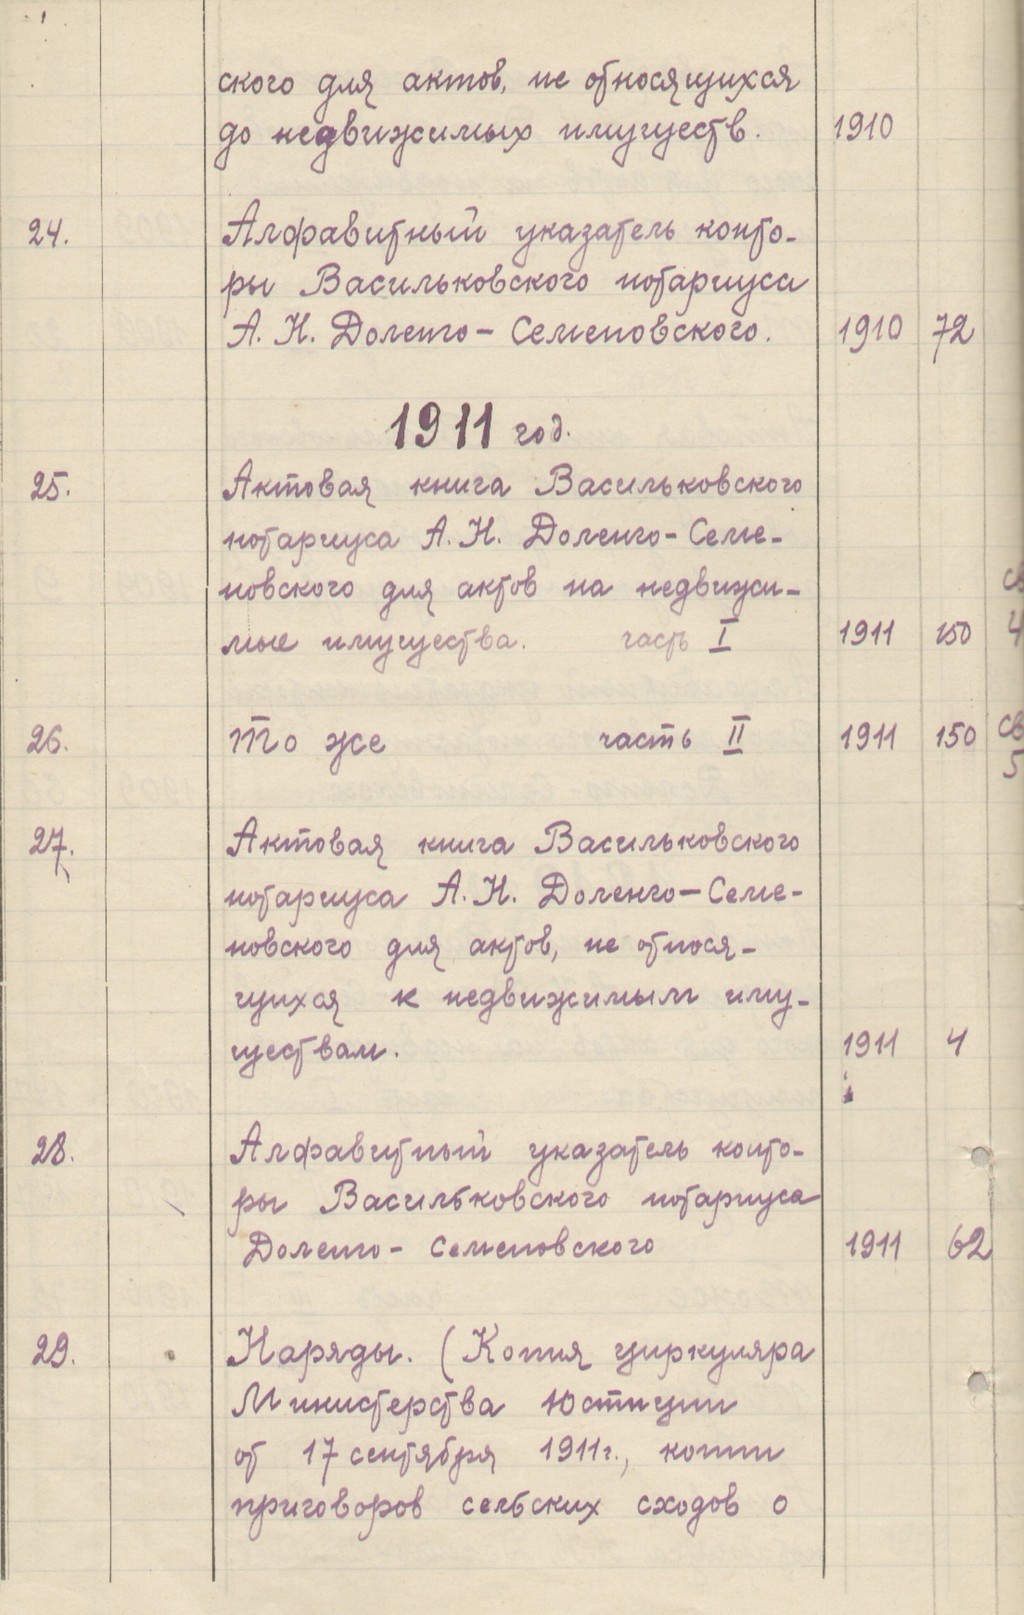 ского для актов, не относящихся
до недвижимых имуществ. 1910
24. Алфавитный указатель конто-
ры Васильковского нотариуса
А. Н. Доленго-Семеновского. 1910 72
1911 год.
25. Актовая книга Васильковского
нотариуса А. Н. Доленго-Семе-
новского для актов на недвижи-
св
мые имущества. часть I 1911 150 4
26. То же часть II 1911 150 св
5
27. Актовая книга Васильковского
нотариуса А. Н. Доленго-Семе-
новского для актов, не относя-
щихся к недвижимым иму-
ществам. 1911 4
28. Алфавитный указатель конто-
ры Васильковского нотариуса
Доленго-Семеновского 1911 62
29. Наряды. (Копия циркуляра
Министерства Юстиции
от 17 сентября 1911 г., копии
приговоров сельских сходов о